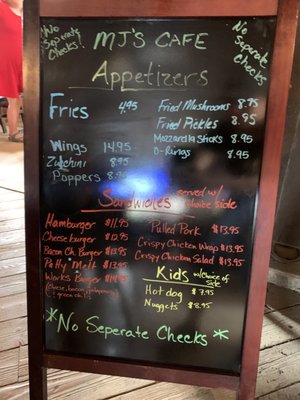 No Seperate Checks.
MJ'S CAFE
No Seperate Checks.
Appetizers
Fries 4.95
Wings 14.95
Zucchini 8.95
Poppers 8.95
Fried Mushrooms 8.95
Fried Pickles 8.95
Mozzarella Sticks 8.95
O-Rings 8.95
Sandwiches served w/ choice side
Hamburger $11.95
Cheese burger $12.95
Bacon Ch. Burger $13.95
Patty Melt $13.95
Works Burger
(cheese, bacon,
Pulled Pork $13.95
Crispy Chicken Wrap $13.95
Crispy Chicken Salad $13.95
Kids w/choice of side
Hot dog $7.95
Nuggets $8.95
*No Seperate Checks*